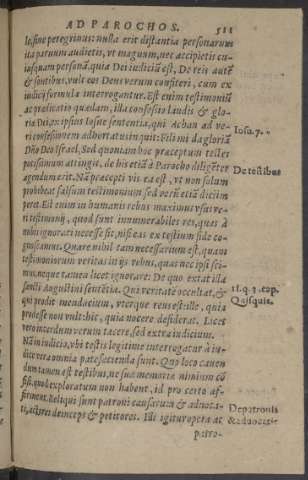 AD PAROCHOS. 511
le, siue peregrinus: nulla erit distantia personarum
ita paruum audietis, vt magnum, nec accipietis cu-
iusquam personā, quia Dei iudiciū est, De reis autē
& sontibus, vult eos Deus verum confiteri, cum ex
iudicij formula interrogantur. Est enim testimoniū
ac prædicatio quædam, illa confessio laudis & glo-
ria Dei, ex ipsius Iosue sententia, qui Achan ad ve-
ri confessionem adhortatus inquit: Fili mi da gloriā
Iosu. 7.
Dño Deo Israel, Sed quoniam hoc præceptum testes
potissimum attingit, de his etiā à Parocho diligēter
De testibus
agendum erit. Nā præcepti vis ea est, vt non solum
prohibeat falsum testimonium sed verū etiā dici im
peret. Est enim in humanis rebus maximus vsus ve-
ri testimonij, quod sunt innumerabiles res, quas à
nobis ignorari necesse sit, nisi eas ex testium fide co-
gnoscamus. Quare nihil tam necessarium est, quam
testimoniorum veritas in ijs rebus, quas nec ipsi sci-
mus, neque tamen licet ignorare: De quo extat illa
sancti Augustini sentētia. Qui veritatē occultat, &
11. q. 3. cap.
qui prodit mendacium, vterque reus est: ille, quia
Quisquis.
prodesse non vult: hic, quia nocere desiderat. Licet
vero interdum verum tacere, sed extra iudicium.
Nā in iudicio, vbi testis legitime interrogatur à iu-
dice vera omnia patefacienda sunt. Quo loco cauen
dum tamen est testibus, ne suæ memoriæ nimium cō
fisi, quod exploratum non habent, id pro certo af-
firment. Reliqui sunt patroni causarum & aduoca-
De patronis
ti, actores deinceps & petitores. Illi igitur opera ac
& aduocatis
patro-